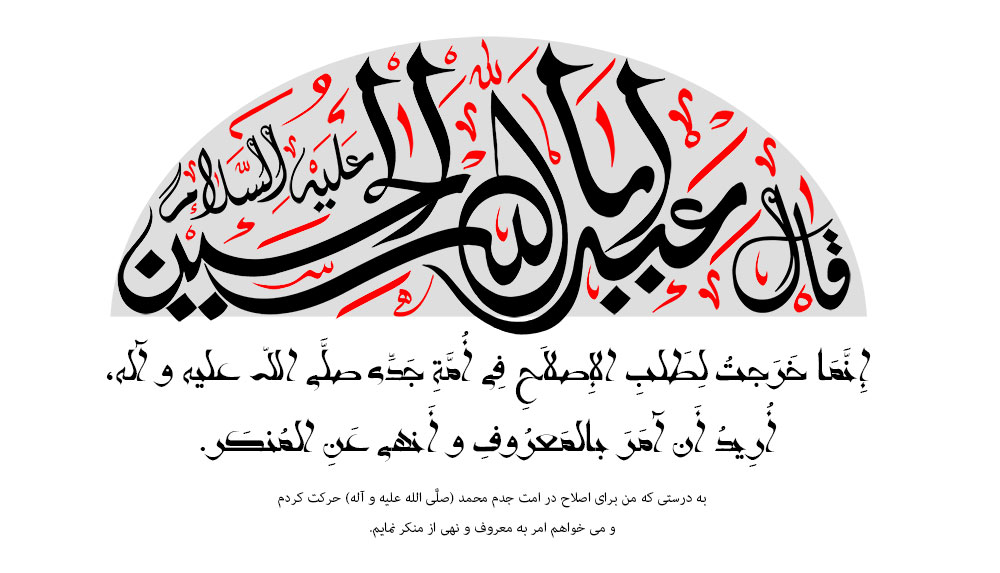 قال اباعبدالله الحسین علیه السلام
إِنَّمَا خَرَجتُ لِطَلَبِ الإِصلَاحِ فِی أُمَّةِ جَدِّی صلَّی اللّه علیه و آله،
أُرِیدُ أَن آمَرَ بالمَعرُوفِ و أَنهی عَنِ المُنکَر.
به درستی که من برای اصلاح در امت جدم محمد (صلَّی الله علیه و آله) حرکت کردم
و می خواهم امر به معروف و نهی از منکر نمایم.